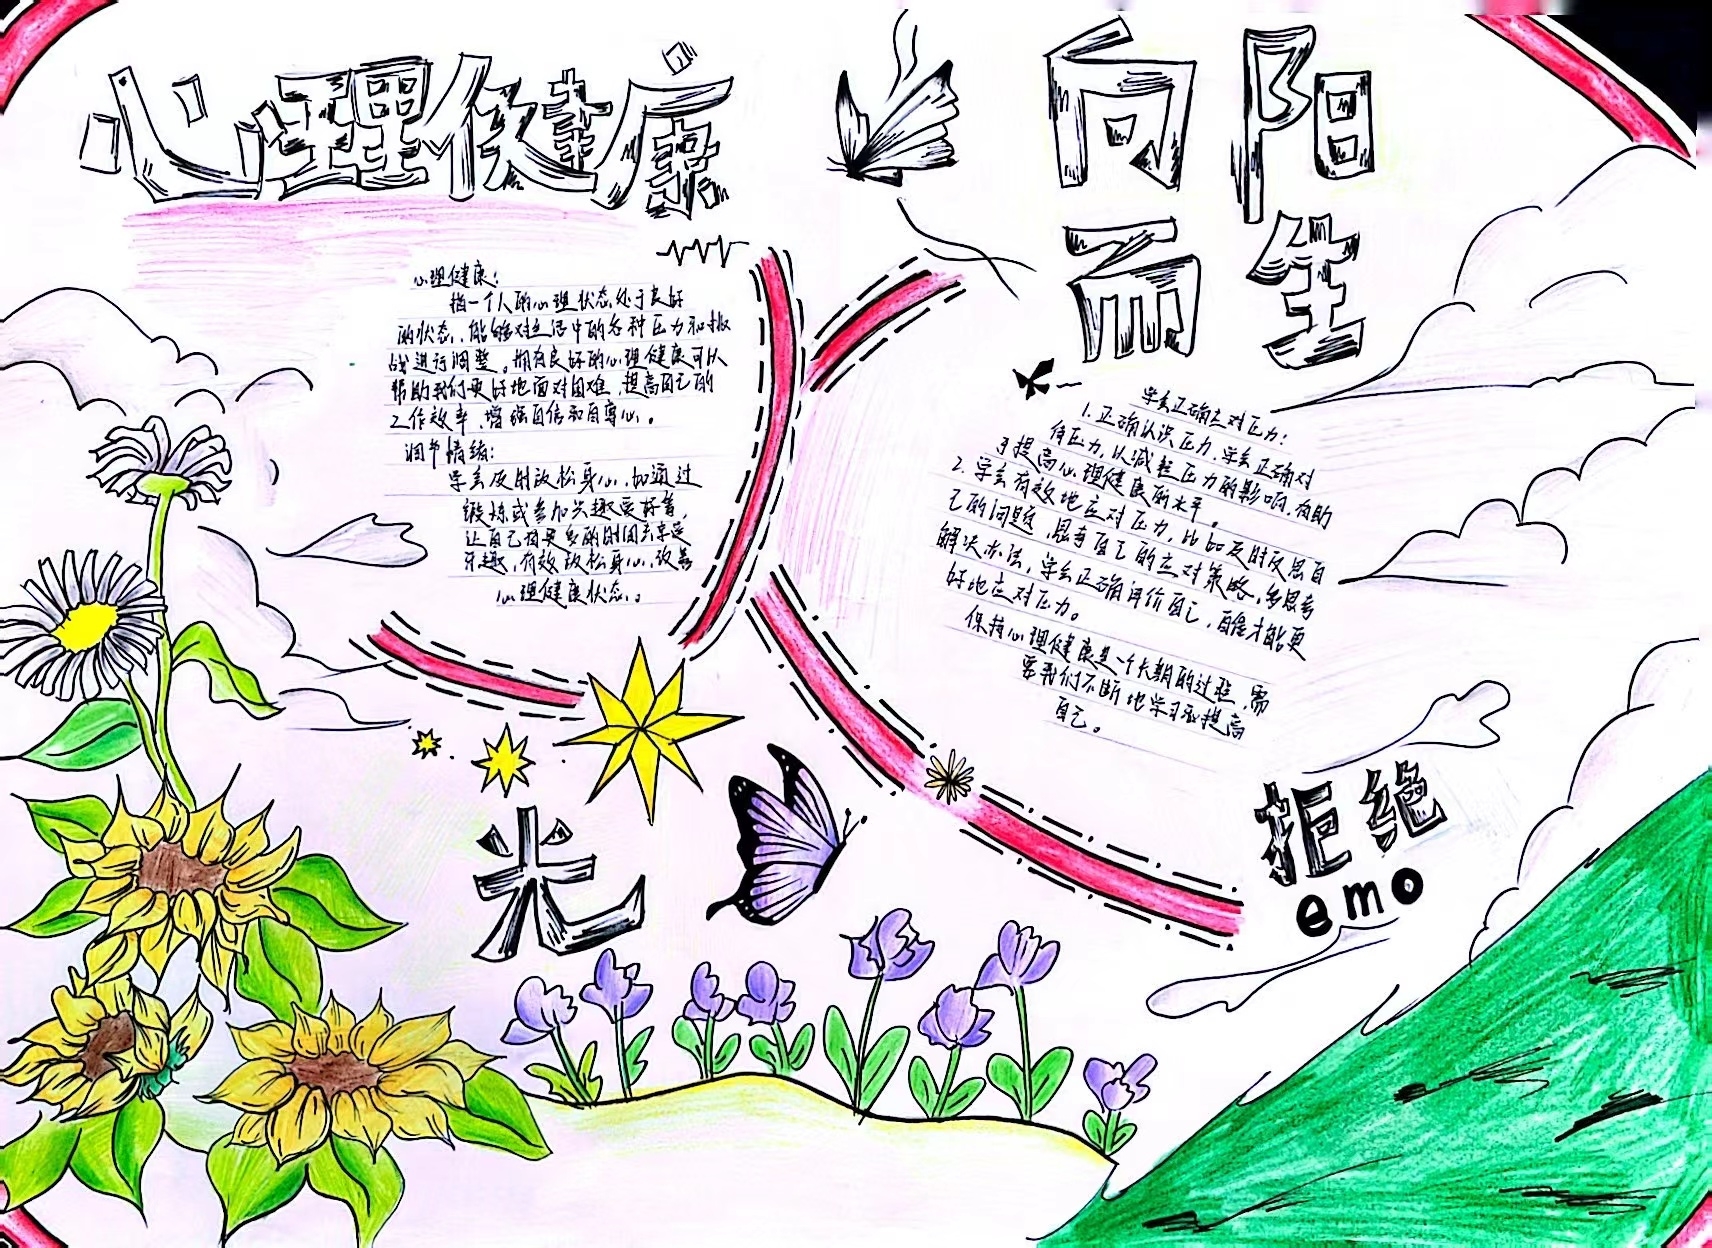 心理健康
向阳
而生
心理健康：
指一个人的心理状态处于良好
的状态，能够对生活中的各种压力和挑
战进行调整。拥有良好的心理健康可以
帮助我们更好地面对困难，提高自己的
工作效率，增强自信和自尊心。
调节情绪：
学会及时放松身心，如通过
锻炼或参加兴趣爱好着，
让自己有更多的时间去享受
乐趣，有效放松身心，改善
心理健康状态。
学会正确应对压力：
1.正确认识压力，学会正确对
待压力，以减轻压力的影响，有助
于提高心理健康的水平。
2.学会有效地应对压力，比如及时反思自
己的问题，思考自己的应对策略，多思考
解决办法，学会正确评价自己，才能更
好地应对压力。
保持心理健康是一个长期的过程，需
要我们不断地学习和提高
自己。
光
拒绝
emo